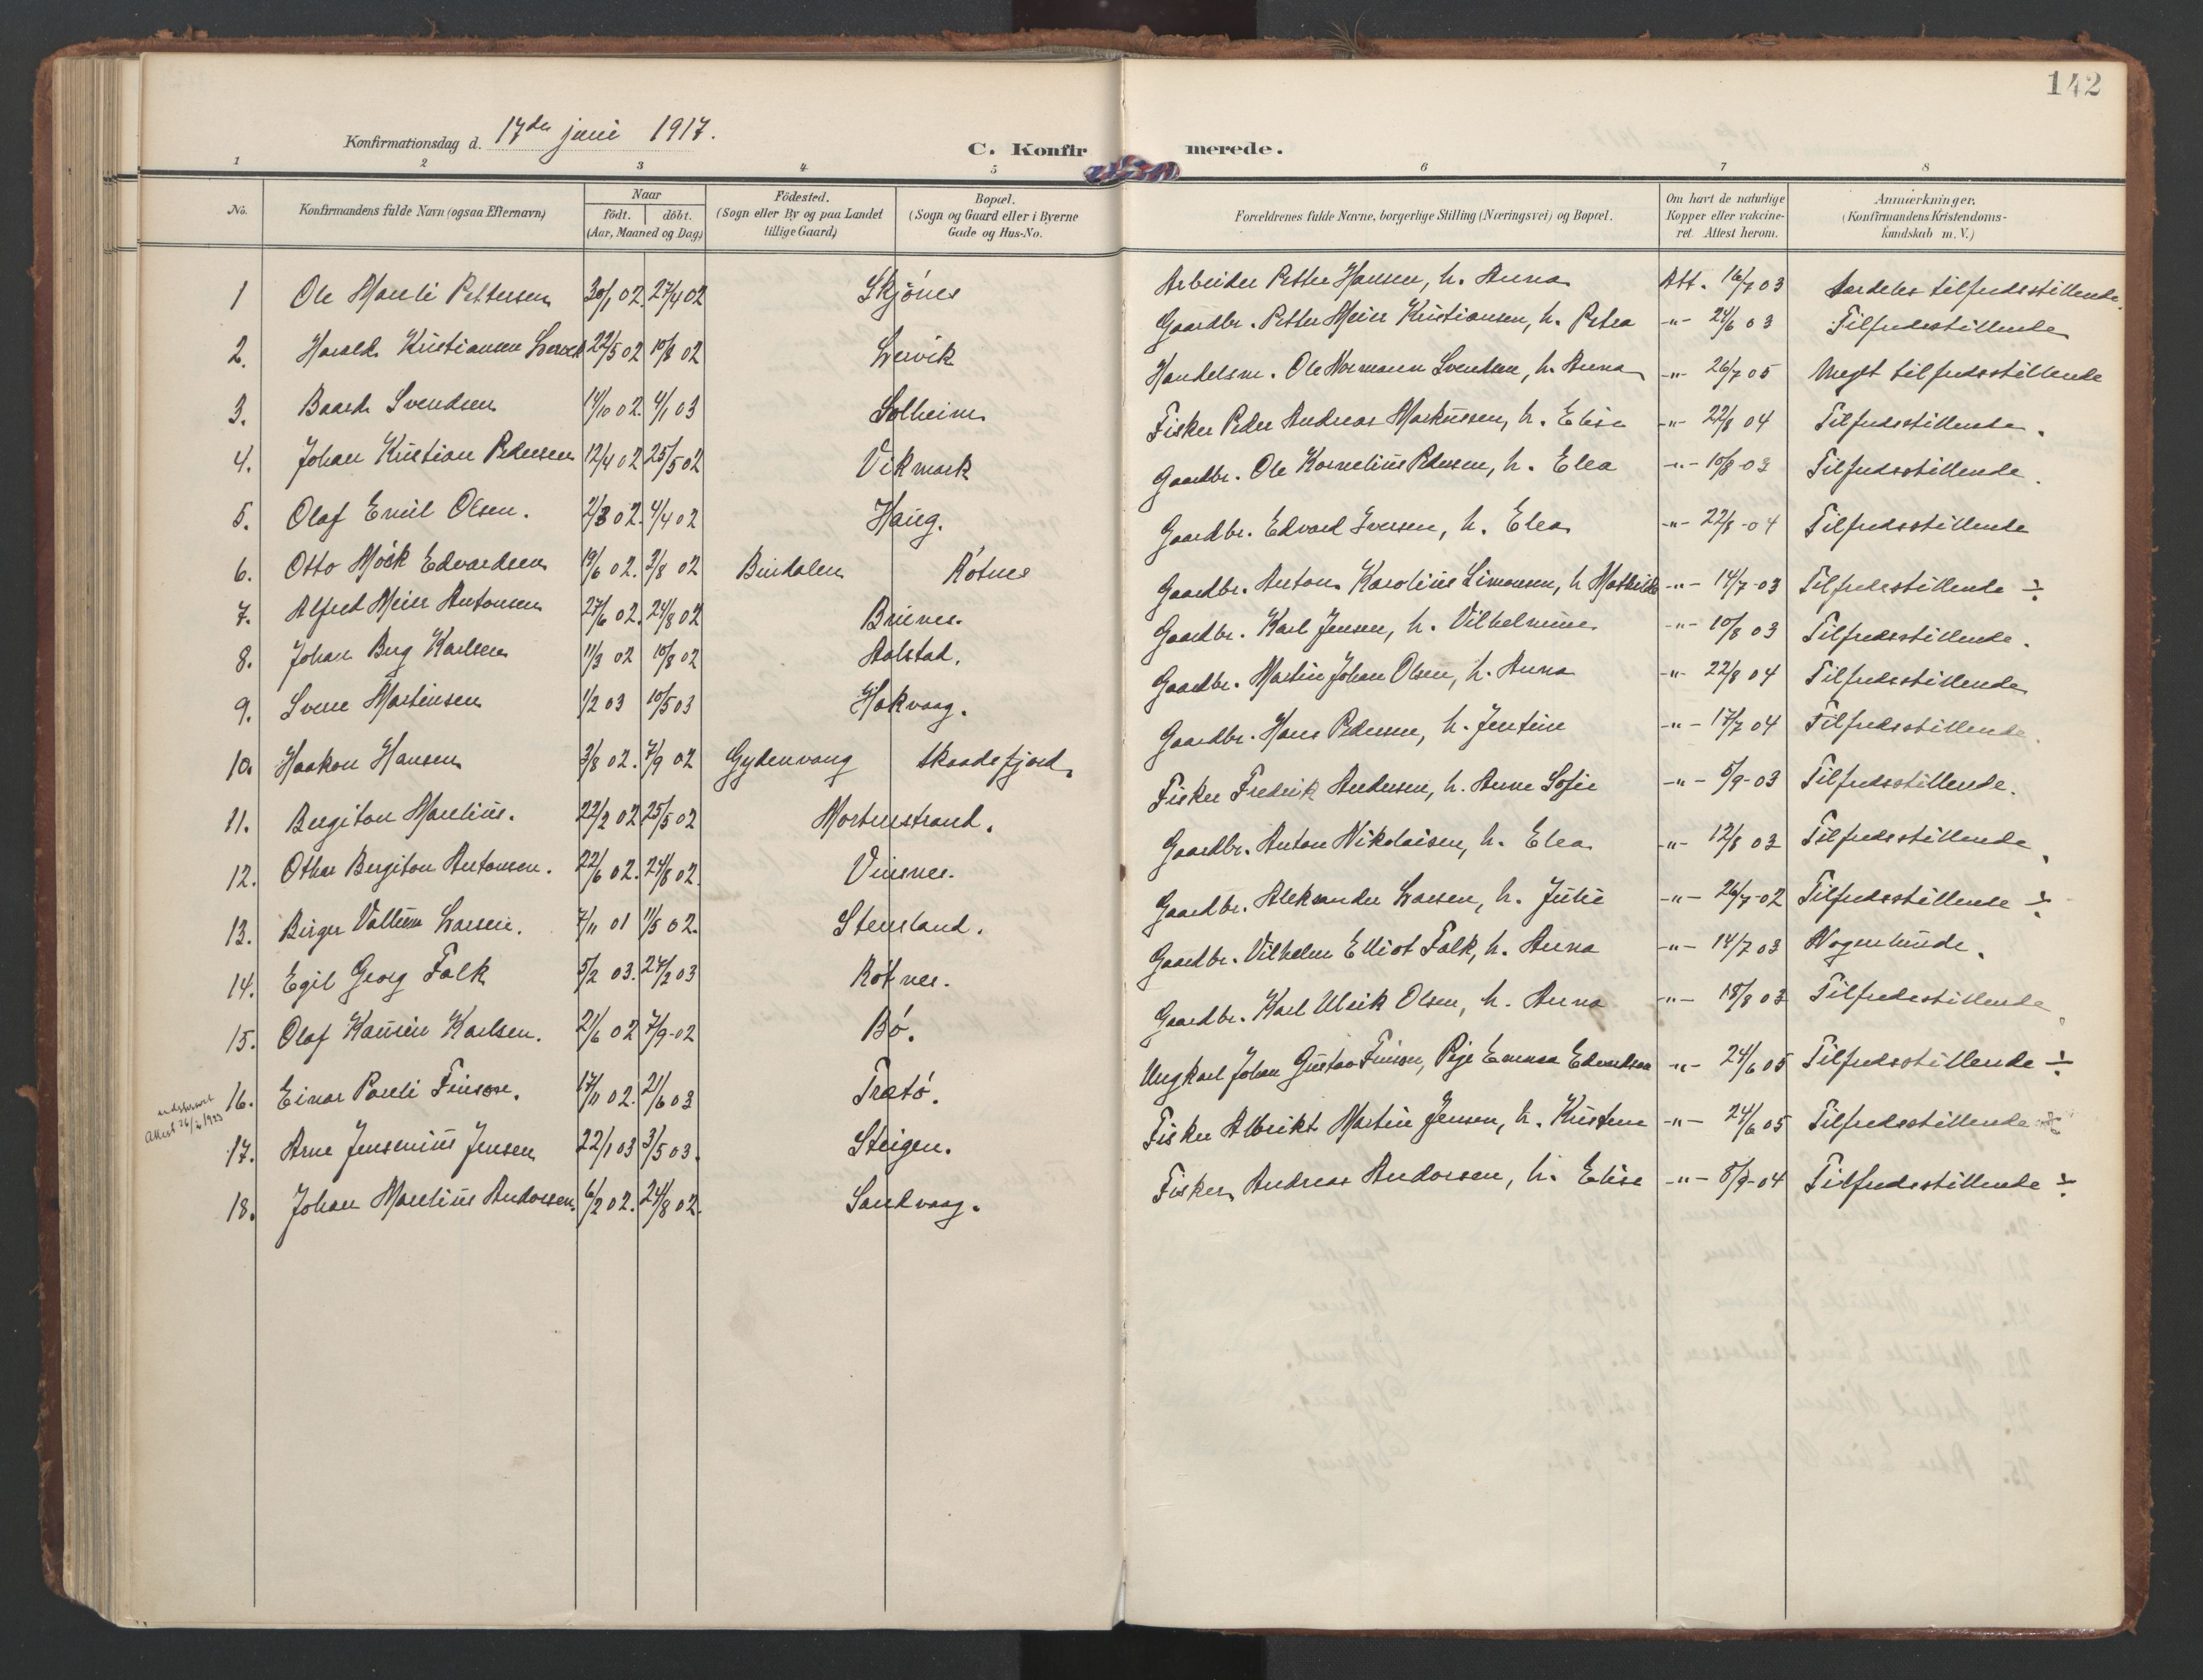 142
Konfirmationsdag d. 17de juni 1917.
C. Konfirmerede.
1 2 3 4 5 6 7 8
No. | Konfirmandens fulde Navn (ogsaa Efternavn) | Naar födt. döbt. (Aar, Maaned og Dag) | Födested. (Sogn eller By og paa Landet tillige Gaard) | Bopæl. (Sogn og Gaard eller i Byerne Gade og Hus-No. | Forældrenes fulde Navne, borgerlige Stilling (Næringsvei) og Bopæl. | Om havt de naturlige Kopper eller vakcineret. Attest herom. | Anmærkninger. (Konfirmandens Kristendomskundskab m. V.)
1 Ole Mareli Pettersen 30/1 02. 27/4 02 Skjönes Arbeider Petter Hansen, h. Anna Att. 16/7 03 Særdeles tilfredsstillende.
2. Harald Kristiansen Lervik 22/5 02 10/8 02 Lervik Gaardbr. Petter Meier Kristiansen, h. Petra -"- 24/6 03 Tilfredsstillende
3. Baard Svendsen 14/10 02. 4/1 03 Solheim Handelsm. Ole Normann Svendsen, h. Anna -"- 26/7 05 Meget tilfredsstillende
4. Johan Kristian Pedersen 12/4 02 25/5 02 Vikmark Fisker Peder Andreas Markussen, h. Elise -"- 22/8 04 Tilfredsstillende.
5. Olaf Emil Olsen. 2/3 02. 4/4 02 Haug. Gaardbr. Ole Kornelius Pedersen, h. Elea -"- 10/8-03 Tilfredsstillende.
6. Otto Mörk Edvardsen 19/6 02. 3/8 02 Bindalen Rötnes Gaardbr. Edvard Iversen, h. Elea -"- 22/8-04 Tilfredsstillende
7. Alfred Meier Antonsen 27/6 02. 24/8 02 Brienes. Gaardbr. Anton Karolius Simonsen, h. Mathilde -"- 14/7-03 Tilfredsstillende ÷
8. Johan Berg Karlsen 11/3 02 10/8 02 Aalstad. Gaardbr. Karl Jensen, h. Vilhelmine -"- 10/8 03 Tilfredsstillende.
9. Sverre Martinsen 1/2 03 10/5 03 Hakvaag. Gaardbr. Martin Johan Olsen, h. Anna -"- 22/8 04 Tilfredsstillende
10. Haakon Hansen 3/8 02. 7/9 02 Gydenvang Skaadefjord. Gaardbr. Hans Pedersen, h. Jentine -"- 17/7 04 Tilfredsstillende.
11. Bergiton Marelius. 22/2 02 25/5 02 Mortenstrand. Fisker Fredrik Andersen, h. Anne Sofie -"- 5/9-03 Tilfredsstillende.
12. Othar Bergiton Antonsen. 22/6 02. 24/8 02. Vinsnes. Gaardbr. Anton Nikolaisen, h. Elea -"- 12/8 03 Tilfredsstillende.
13. Birger Larsen. 7/11 01 11/5 02. Stensland. Gaardbr. Aleksander Larsen, h. Julie -"- 26/7-02 Tilfredsstillende ÷
14. Egil Georg Falk 5/2 03. 24/2 03 Rötnes. Gaardbr. Vilhelm Elliot Falk, h. Anna -"- 14/7 03 Nogenlunde.
15. Olaf Hansen Karlsen. 21/6 02 7/9-02 Bö. Gaardbr. Karl Ulrik Olsen, h. Anna -"- 18/8 03 Tilfredsstillende.
16. Einar Pareli Finsson. 17/11 02. 21/6 03 Trætö. Ungkarl Johan Gustav Finson, Pige Emma Edvardsen -"- 24/6 05 Tilfredsstillende ÷
Attest 26/2 1923
17. Arne Jensenius Jensen 22/1 03 3/5 03. Steigen. Fisker Albrikt Martin Jensen, h. Kristine -"- 24/6 05 Tilfredsstillende ÷
18. Johan Marelius Andorsen. 6/2 02. 24/8 02. Sandvaag. Fisker Andreas Andorsen, h. Elise -"- 5/9-04 Tilfredsstillende ÷